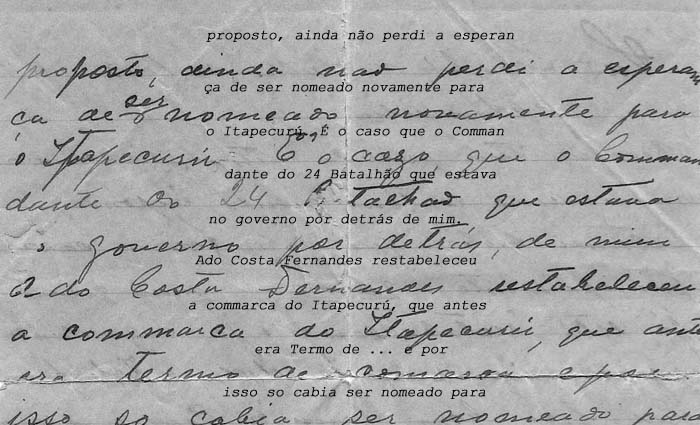 proposto, ainda não perdi a esperan
proposto, ainda nao perdi a esperan
ça de ser nomeado novamente para
ça de ser nomeado novamente para
o Itapecurú. É o caso que o Comman
o Itapecurú É o cazo, que o Comman
dante do 24 Batalhão que estava
dante do 24 Batalhao que estava
no governo por detrás de mim.
governo por detrás, de mim
Ado Costa Fernandes restabeleceu
do Costa Fernandes restabeleceu
a commarca do Itapecurú, que antes
a commarca do Itapecurú, que ante
era Termo de ... e por
era termo de comarca e por
isso so cabia ser nomeado para
isso so cabia ser nomeado para